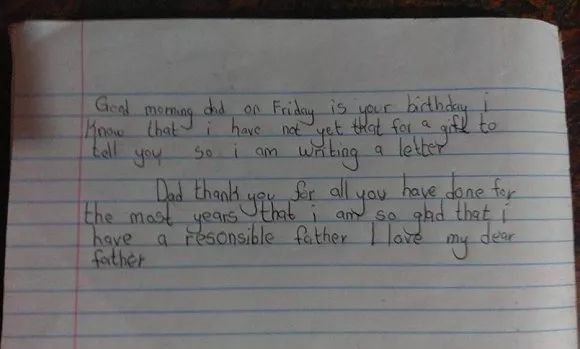 Good morning dad on Friday is your birthday i
Know that i have not yet that for a gift to
tell you so i am writing a letter
Dad thank you for all you have done for
the most years that i am so glad that i
have a resonsible father I love my dear
father